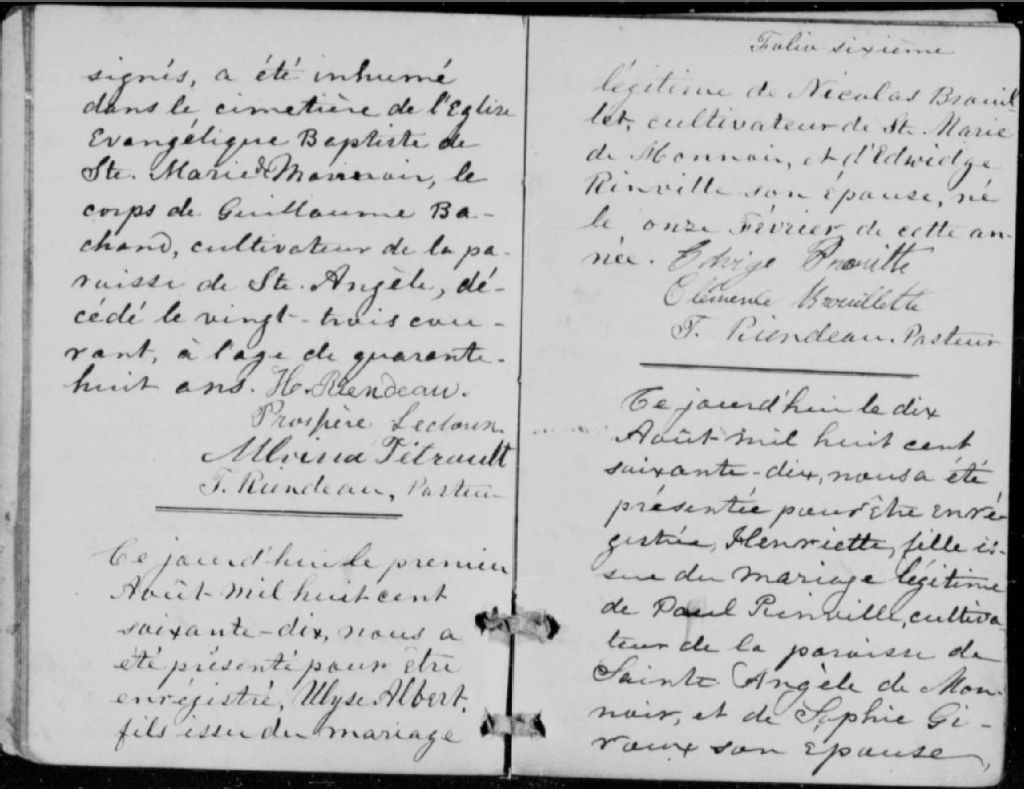 signés, a été inhumé
dans le cimetière de l'Eglise
Evangélique Baptiste de
Ste. Marie de Monnoir, le
corps de Guillaume Ba-
chand, cultivateur de la pa-
roisse de Ste. Angèle, dé-
cédé le vingt-trois cou-
rant, à l'age de quarante-
huit ans. H. Riendeau.
Prospère
Alvina Tétrault
T. Riendeau, Pasteur
Ce jourd'hui le premier
Août mil huit cent
soixante-dix, nous a
été présenté pour être
enrégistré, Ulyse Albert,
fils issu du mariage
Folio sixième
légitime de Nicolas Brouil-
let, cultivateur de Ste Marie
de Monnoir, et d'Edwidge
Rinville son épouse, né
le onze Février de cette an-
née. Edvige
Clémence Brouillette
T. Riendeau. Pasteur
Ce jourd'hui le dix
Août mil huit cent
soixante-dix, nous a été
présentée pour être enré-
gistrée, Henriette, fille is-
sue du mariage légitime
de Paul Rinville, cultiva-
teur de la paroisse de
Sainte Angèle de Mon-
noir, et de Sophie Gi-
roux son épouse,